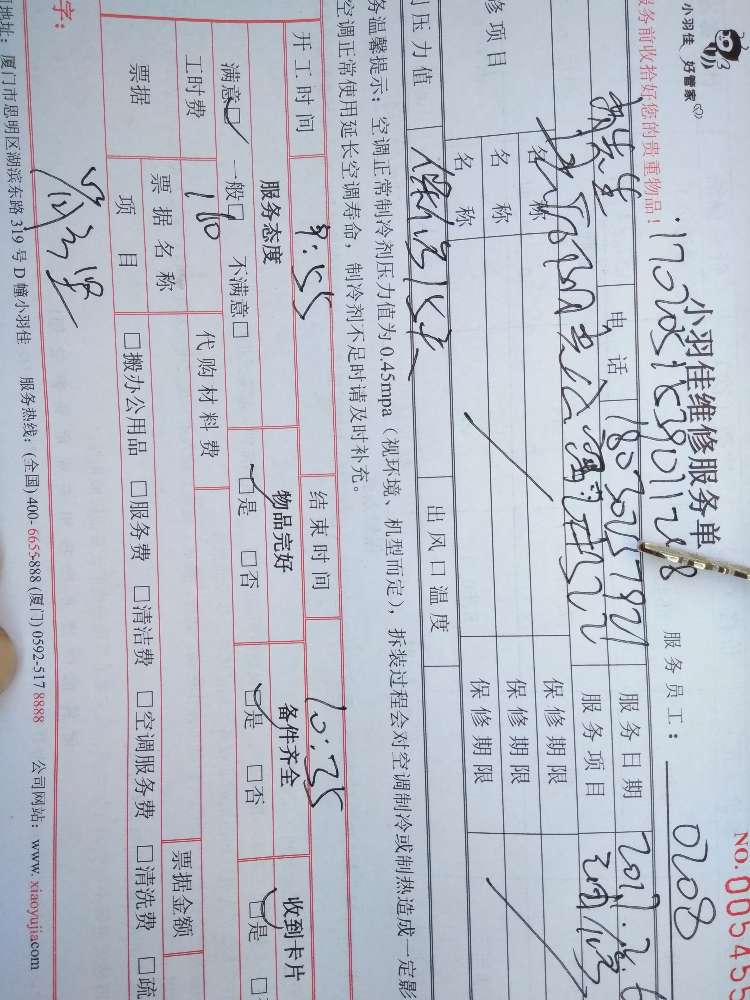 小羽佳 好管家
NO.005455
小羽佳维修服务单
服务员工： 0208
服务前收拾好您的贵重物品！
电话 服务日期
服务项目
修项目 名称 保修期限
名称 保修期限
名称 保修期限
压力值 出风口温度
务温馨提示：空调正常制冷剂压力值为0.45mpa（视环境、机型而定），拆装过程会对空调制冷或制热造成一定影
空调正常使用延长空调寿命，制冷剂不足时请及时补充。
开工时间 9:55 结束时间 10:35
服务态度 物品完好 备件齐全 收到卡片
满意☑ 一般□ 不满意□ ☑是 □否 ☑是 □否 ☑是 □
工时费 180 代购材料费
票据 票据名称 票据金额
项目 □搬办公用品 □服务费 □清洁费 □空调服务费 □清洗费 □疏
字：
地址：厦门市思明区湖滨东路319号D幢小羽佳 服务热线：(全国) 400-6655-888 (厦门) 0592-517 8888 公司网站：www.xiaoyujia.com